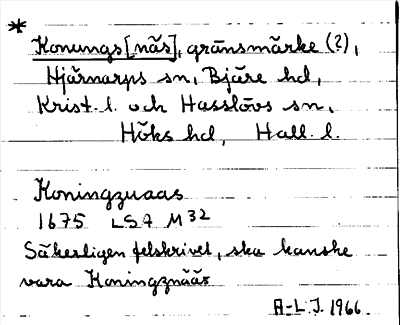 * Konungs[näs], gränsmärke (?),
Hjärnarps sn, Bjäre hd,
Krist. l. och Hasslövs sn,
Höks hd, Hall. l.
Koningzuaas
1675 LSA M32
Säkerligen felskrivet, ska kanske
vara Koningznääs
A-L.J. 1966.